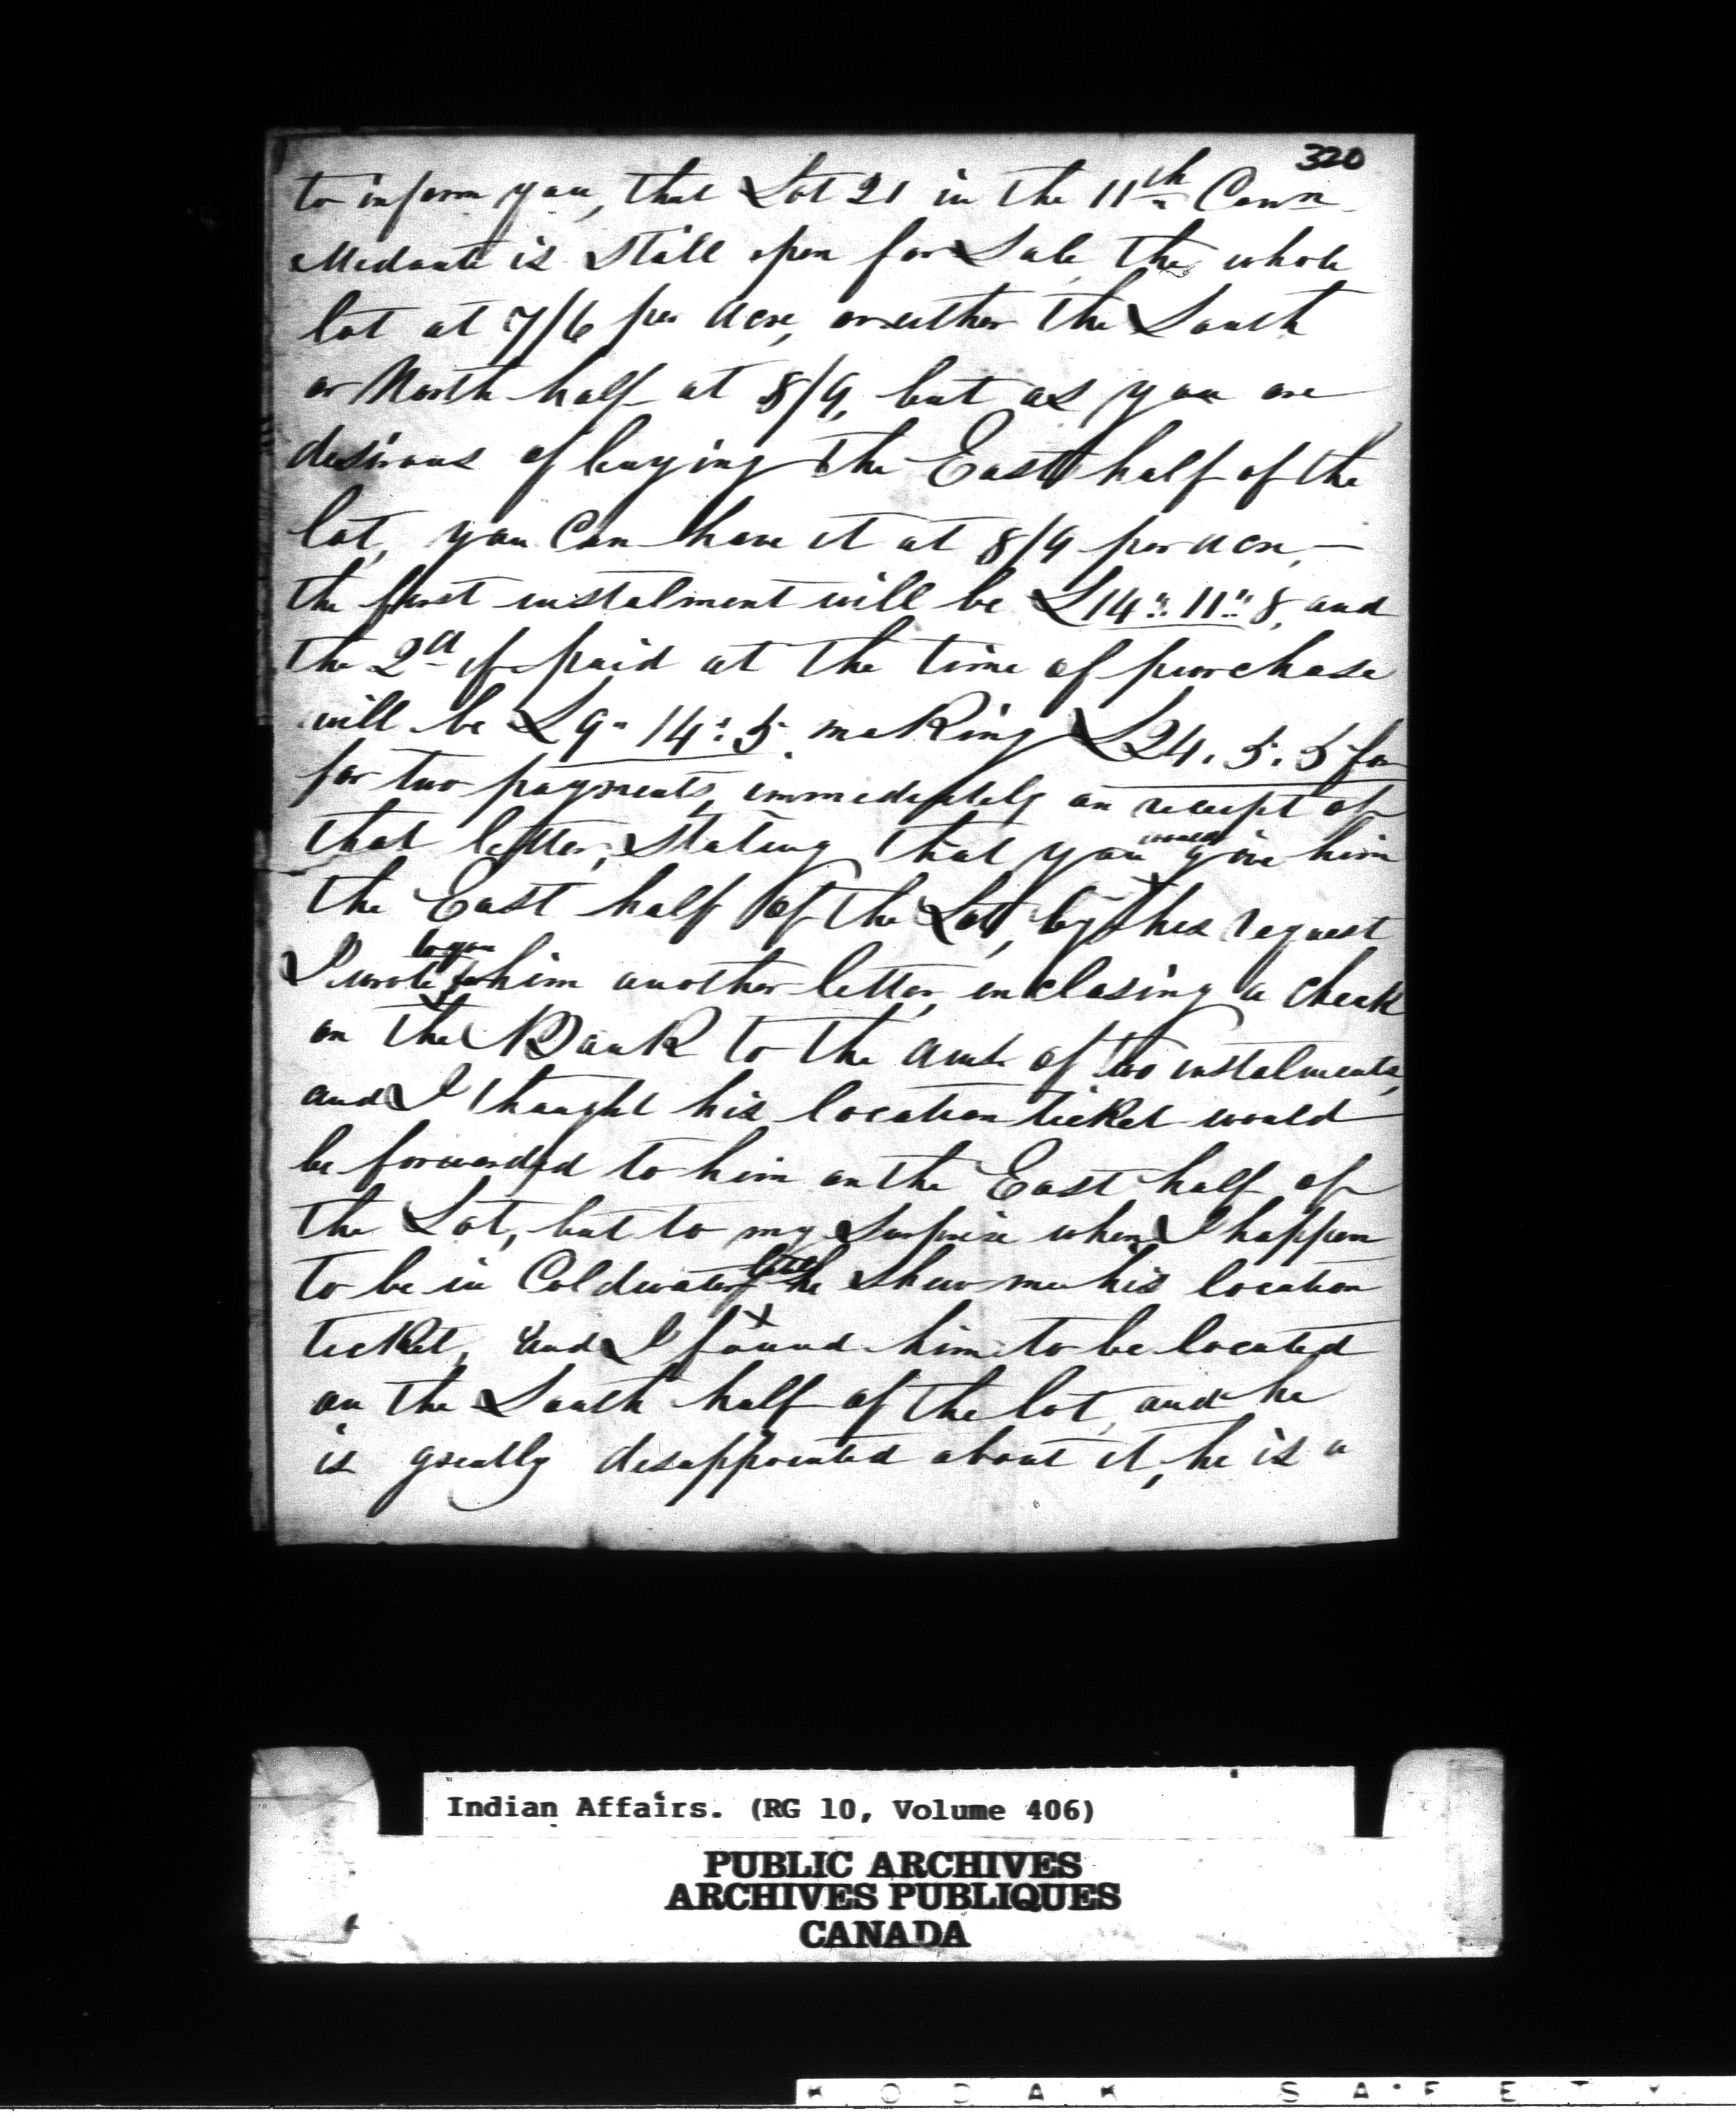 320
to inform you, that Lot 21 in the 11th Conn
Medonte is still open for Sale, the whole
lot at 7/6 per acre, or either the South
or North half at 8/9, but as you are
desirous of buying the East half of the
lot, you Can have it at 8/9 per acre,—
the first instalment will be £14"11"8, and
the 2d if paid at the time of purchase
will be £9"14:5 making £24.5.5 for
for two payments, immediately on receipt of
that letter, Stating that you would give him
the East half of the Lot, by his request
I wrote to you for him another letter, enclosing a check
on the Bank to the amt of two instalments,
and I thought his location ticket would
be forwarded to him on the East half of
the Lot, but to my Surprise when I happen
to be in Coldwater he shew me his location
ticket, and I found him to be located
on the South half of the lot, and he
is greatly disappointed about it, he is a
Indian Affairs. (RG 10, Volume 406)
PUBLIC ARCHIVES
ARCHIVES PUBLIQUES
CANADA
KODAK SAFETY